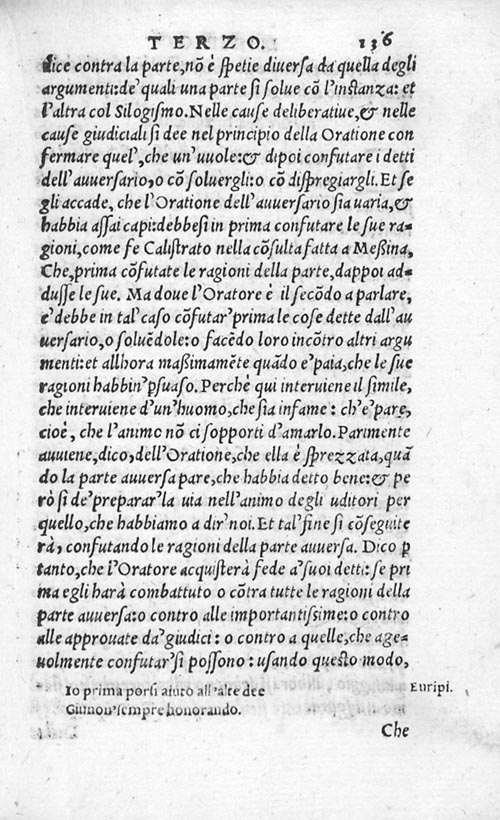 TERZO. 136
dice contra la parte, nõ è spetie diversa da quella degli
argumenti: de' quali una parte si solue cõ l'instanza: et
l'altra col Silogismo. Nelle cause deliberative, & nelle
cause giudiciali si dee nel principio della Oratione con
fermare quel', che un' uuole: & dipoi confutare i detti
dell' auuersario, o cõ soluergli: o cõ dispregiargli. Et se
gli accade, che l'Oratione dell' auuersario sia uaria, &
habbia assai capi: debbesi in prima confutare le sue ra-
gioni, come fe Calistrato nella cõsulta fatta a Meßina,
Che, prima cõfutate le ragioni della parte, dappoi ad-
dusse le sue. Ma doue l'Oratore è il secõdo a parlare,
e' debbe in tal' caso cõfutar' prima le cose dette dall' au
uersario, o soluẽdole: o facẽdo loro incõtro altri argu
menti: et allhora maßimamẽte quãdo e' paia, che le sue
ragioni habbin' ꝑsuaso. Perchè qui interuiene il simile,
che interuiene d'un' huomo, che sia infame: ch' e' pare,
cioè, che l'animo nõ ci sopporti d'amarlo. Parimente
auuiene, dico, dell' Oratione, che ella è sprezzata, quã
do la parte auuersa pare, che habbia detto bene: & pe
rò si de' preparar' la uia nell' animo degli uditori per
quello, che habbiamo a dir' noi. Et tal' fine si cõseguite
rà, confutando le ragioni della parte auuersa. Dico ꝑ
tanto, che l'Oratore acquisterà fede a' suoi detti: se pri
ma egli harà combattuto o cõtra tutte le ragioni della
parte auuersa: o contro alle importantissime: o contro
alle approuate da' giudici: o contro a quelle, che age-
uolmente confutar' si possono: usando questo modo,
Io prima porsi aiuto all' alte dee Euripi.
Giunon' sempre honorando.
Che